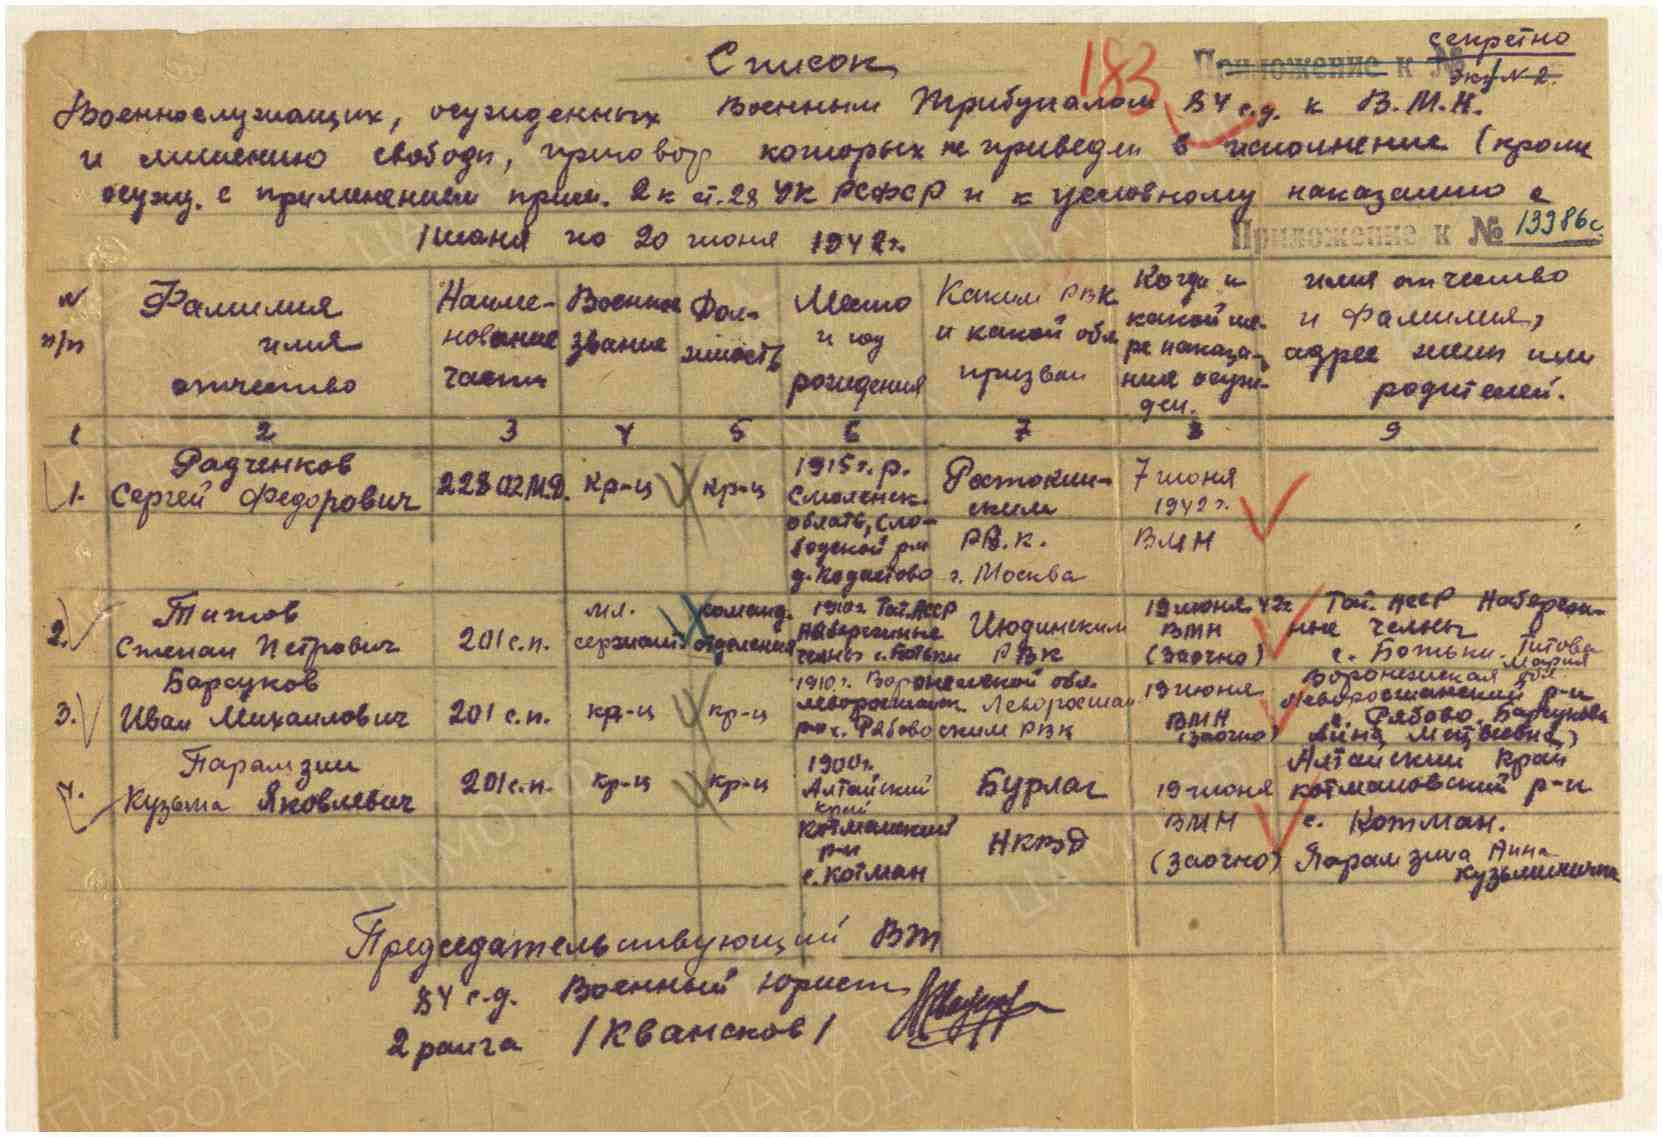 секретно
Приложение к №
экз № 2.
183
Список
Военнослужащих, осужденных Военным Трибуналом 84 с.д. к В.М.Н.
и лишению свободы, приговор которых не приведен в исполнение (кроме
осужд. с применением прим. 2 к ст. 28 УК РСФСР и к условному наказанию с
1 июня по 20 июня 1942 г.
Приложение к № 13986с
№ п/п
Фамилия имя отчество
Наиме-
нование
части
Военное
звание
Дол-
жность
Место
и год
рождения
Каким РВК
и какой обл
призван
Когда и
какой ме-
ре наказа-
ния осуж-
ден.
имя отчество
и фамилия,
адрес жены или
родителей.
1 2 3 4 5 6 7 8 9
1.
Радченков
Сергей Федорович
228 ОТМД.
кр-ц
кр-ц
1915 г. р.
Смоленск.
область, Сло-
бодской р-н
г. Москва
Ростокин-
ским
РВ.К.
7 июня
1942 г.
ВМН
2.
Титов
Степан Петрович
201 с.п.
мл.
сержант
команд.
отделения
1910 г. Тат. АССР
Набережные
челны с. Ботьки
Июдинским
РВК
19 июня 42 г
ВМН
(заочно)
Тат. АССР Набереж-
ные челны
с. Ботьки. Титова
Мария
3.
Барсуков
Иван Михаилович
201 с.п.
кр-ц
кр-ц
1910 г. Воронежской обл.
р-н с. Рябово
Леворосшан
ским РВК
19 июня
ВМН
(заочно)
Воронежская обл.
Леворосшанский р-н
с. Рябово. Барсукова
Анна Матвеевна
4.
Парамзин
Кузьма Яковлевич
201 с.п.
кр-ц
кр-ц
1900 г.
Алтайский
край
р-н
с. Котман
Бурлаг
НКВД
19 июня
ВМН
(заочно)
Алтайский Край
котмановский р-н
с. Котман.
Парамзина Анна
Кузьминична
Председательствующий ВТ
84 с.д. Военный Юрист
2 ранга /Квансков/